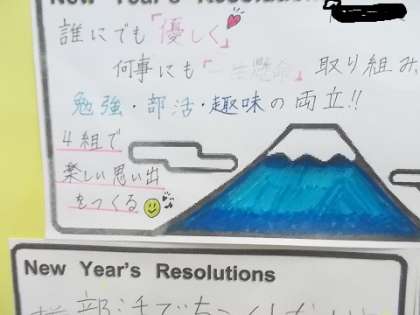 New Year's Resolutions
誰にでも「優しく」
何事にも「一生懸命」取り組み
勉強・部活・趣味の両立!!
4組で
楽しい思い出
をつくる
New Year's Resolutions